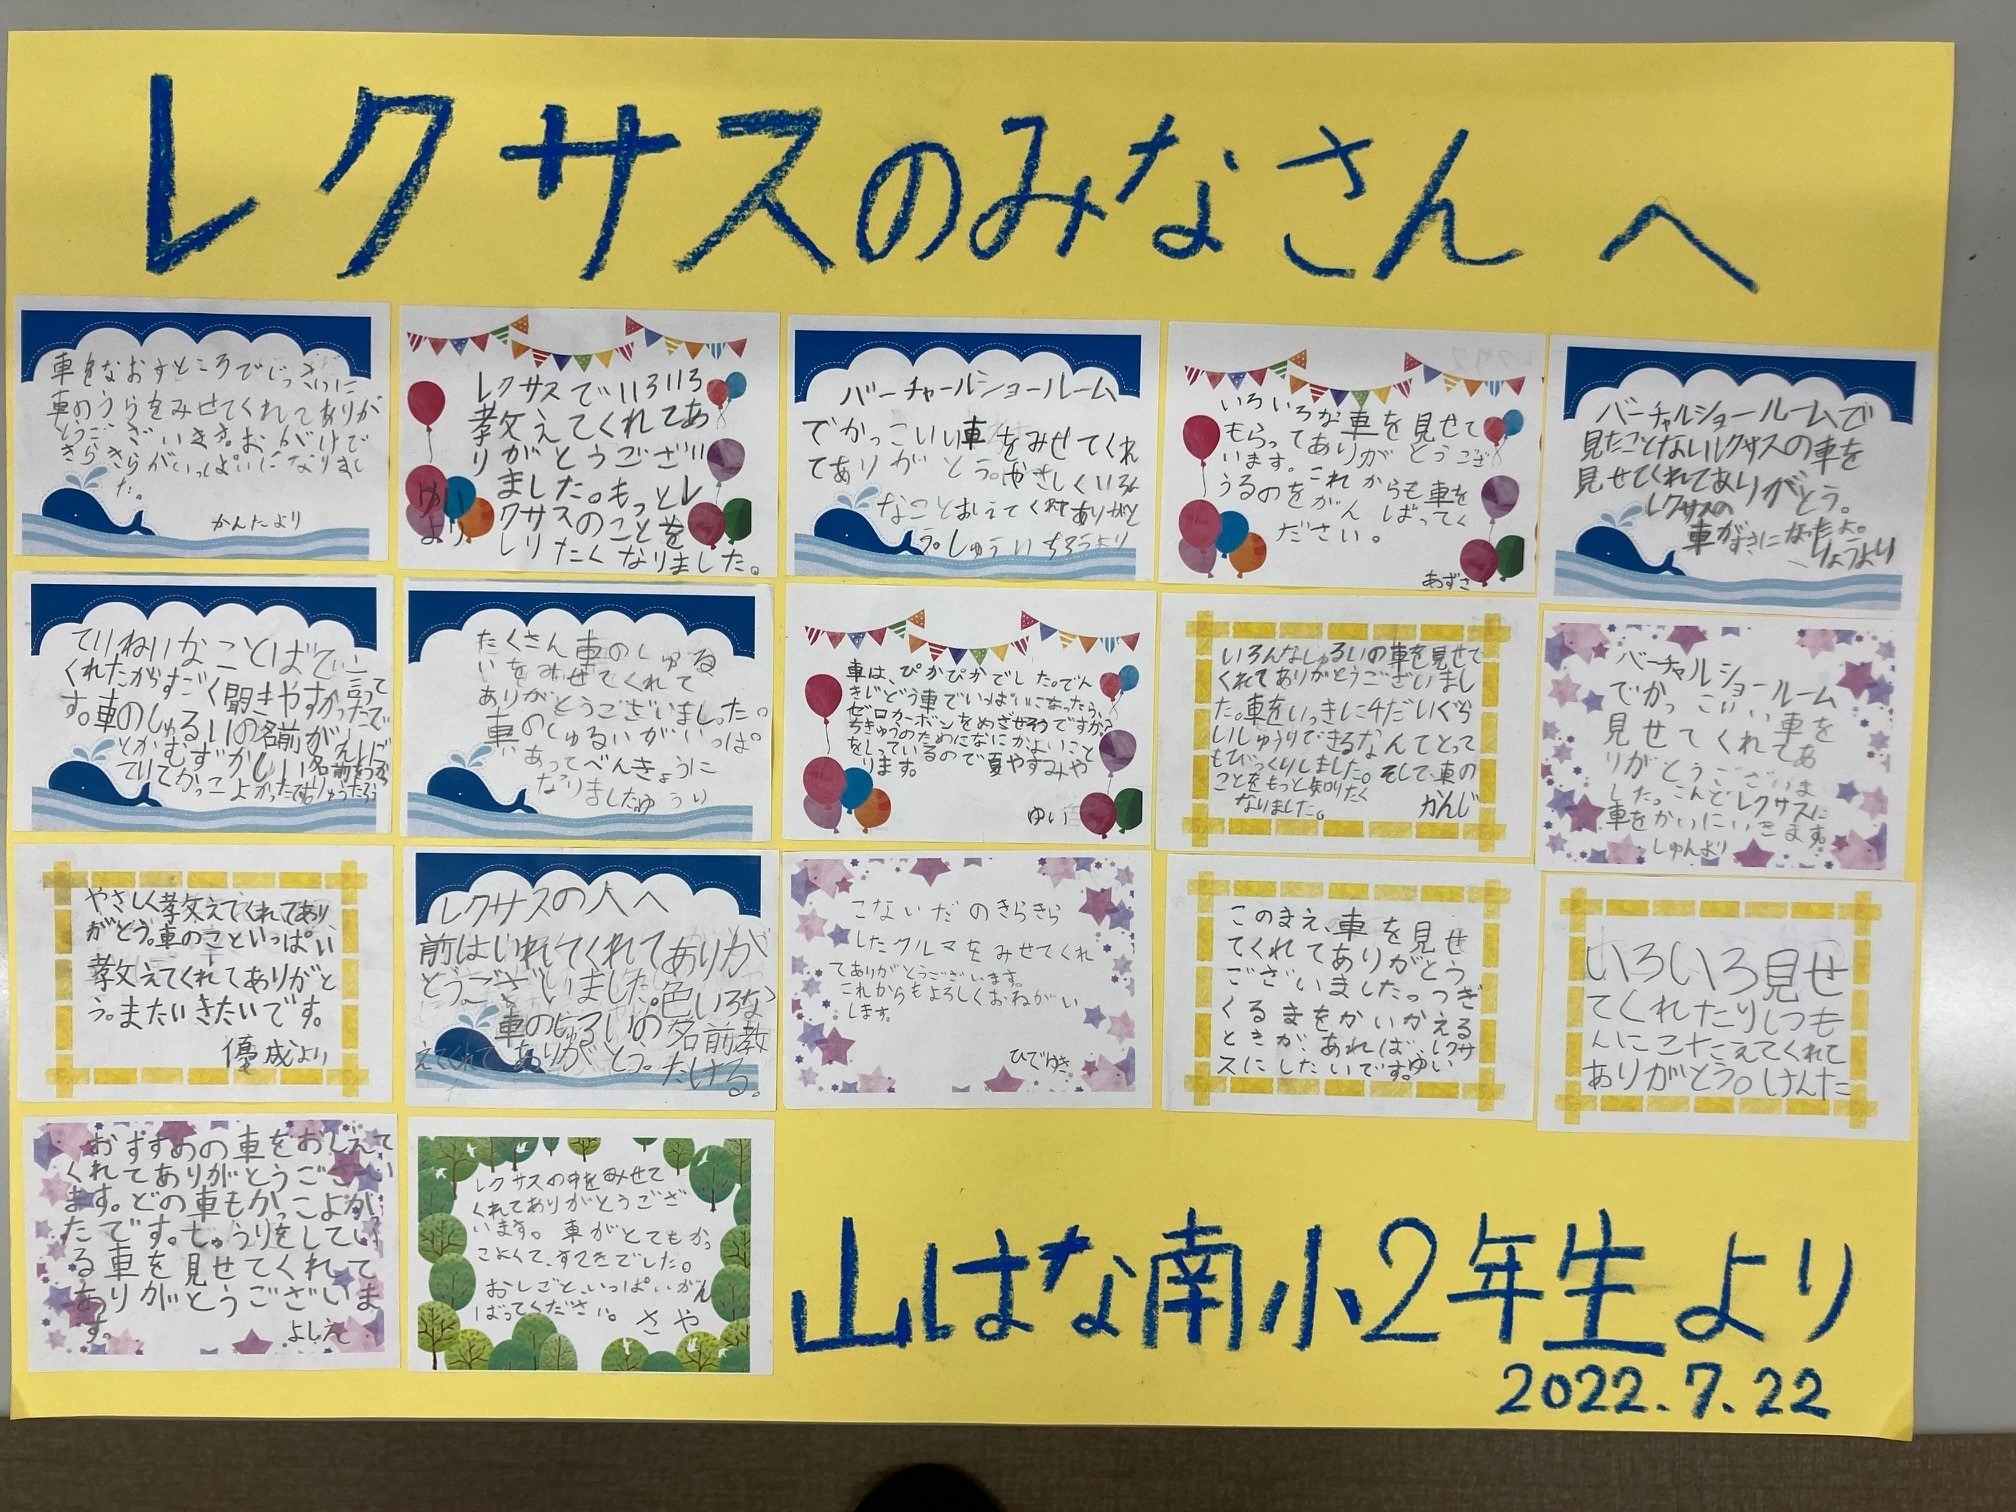 レクサスのみなさんへ
車をなおすところでじっさいに
車のうらをみせてくれてありが
とうございます。おかげで
きらきらがいっぱいになりまし
た。
かんたより
レクサスでいろいろ
教えてくれてあ
りがとうござい
ました。もっとレ
クサスのことを
しりたくなりました。
ゆい
より
バーチャールショールーム
でかっこいい車をみせてくれ
てありがとう。やさしくいろん
なことおしえてくれてありがと
う。しゅういちろうより
いろいろな車を見せて
もらってありがとうござ
います。これからも車を
うるのをがんばってく
ださい。
あずさ
バーチャルショールームで
見たことないレクサスの車を
見せてくれてありがとう。
レクサスの
車がすきになったよ。
りょうより
ていねいなことばで言って
くれたがすごく聞きやすかったで
す。車のしゅるいの名前がんしに
とかむずかしい名前をつか
ていてかっこよかったです
りゅうたろう
たくさん車のしゅる
いをみせてくれて
ありがとうございました。
車のしゅるいがいっぱ
あってべんきょうに
なりました ゆうい
車は、ぴかぴかでした。でん
きじどう車でいっぱいになったら、
ゼロカーボンをめざせそうですか?
ちきゅうのためになにかよいこと
をしっているので夏やすみや
ります。
ゆい
いろんなしゅるいの車を見せて
くれてありがとうございまし
た。車をいっきに4だいぐら
いしゅうりできるなんてとって
もびっくりしました。そして、車の
ことをもっと知りたく
なりました。
かんじ
バーチャルショールーム
でかっこいい車を
見せてくれてあ
りがとうございま
した。こんどレクサスに
車をかいにいきます。
しゅんより
やさしく教えてくれてあり
がとう。車のこといっぱい
教えてくれてありがと
う。またいきたいです。
優成より
レクサスの人へ
前はいれてくれてありが
とうございました。色いろな
車のしゅるいの名前教
えてくれてありがとう。たける。
こないだのきらきら
したクルマをみせてくれ
てありがとうございます。
これからもよろしくおねがい
します。
ひでゆき
このまえ、車を見せ
てくれてありがとう
ございました。つぎ
くるまをかいかえる
ときが、あれば、レクサ
スにしたいです。ゆい
いろいろ見せ
てくれたりしつも
んにこたえてくれて
ありがとう。けんた
おすすめの車をおしえて
くれてありがとうござい
ます。どの車もかっこよかっ
たです。しゅうりをしてい
る車を見せてくれて
ありがとうございま
す。
よしえ
レクサスの中をみせて
くれてありがとうござ
います。車がとてもかっ
こよくて、すてきでした。
おしごと、いっぱいがん
ばってください。さや
山はな南小2年生より
2022.7.22